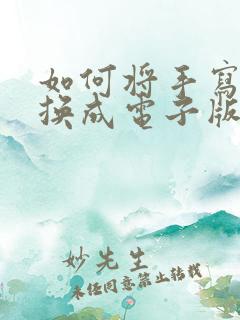 如何将手寫
換成電子版
妙先生
未经同意禁止转载